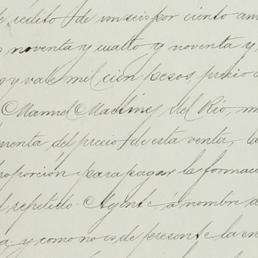 redito de un seis por ciento an
noventa y cuatro y noventa y
y vale mil cien pesos, precio
Manuel Martinez del Rio, m
cuenta del precio de esta venta, la
proporción para pagar la formac
el repetido Agente á nombre d
a y como no es de presente la en